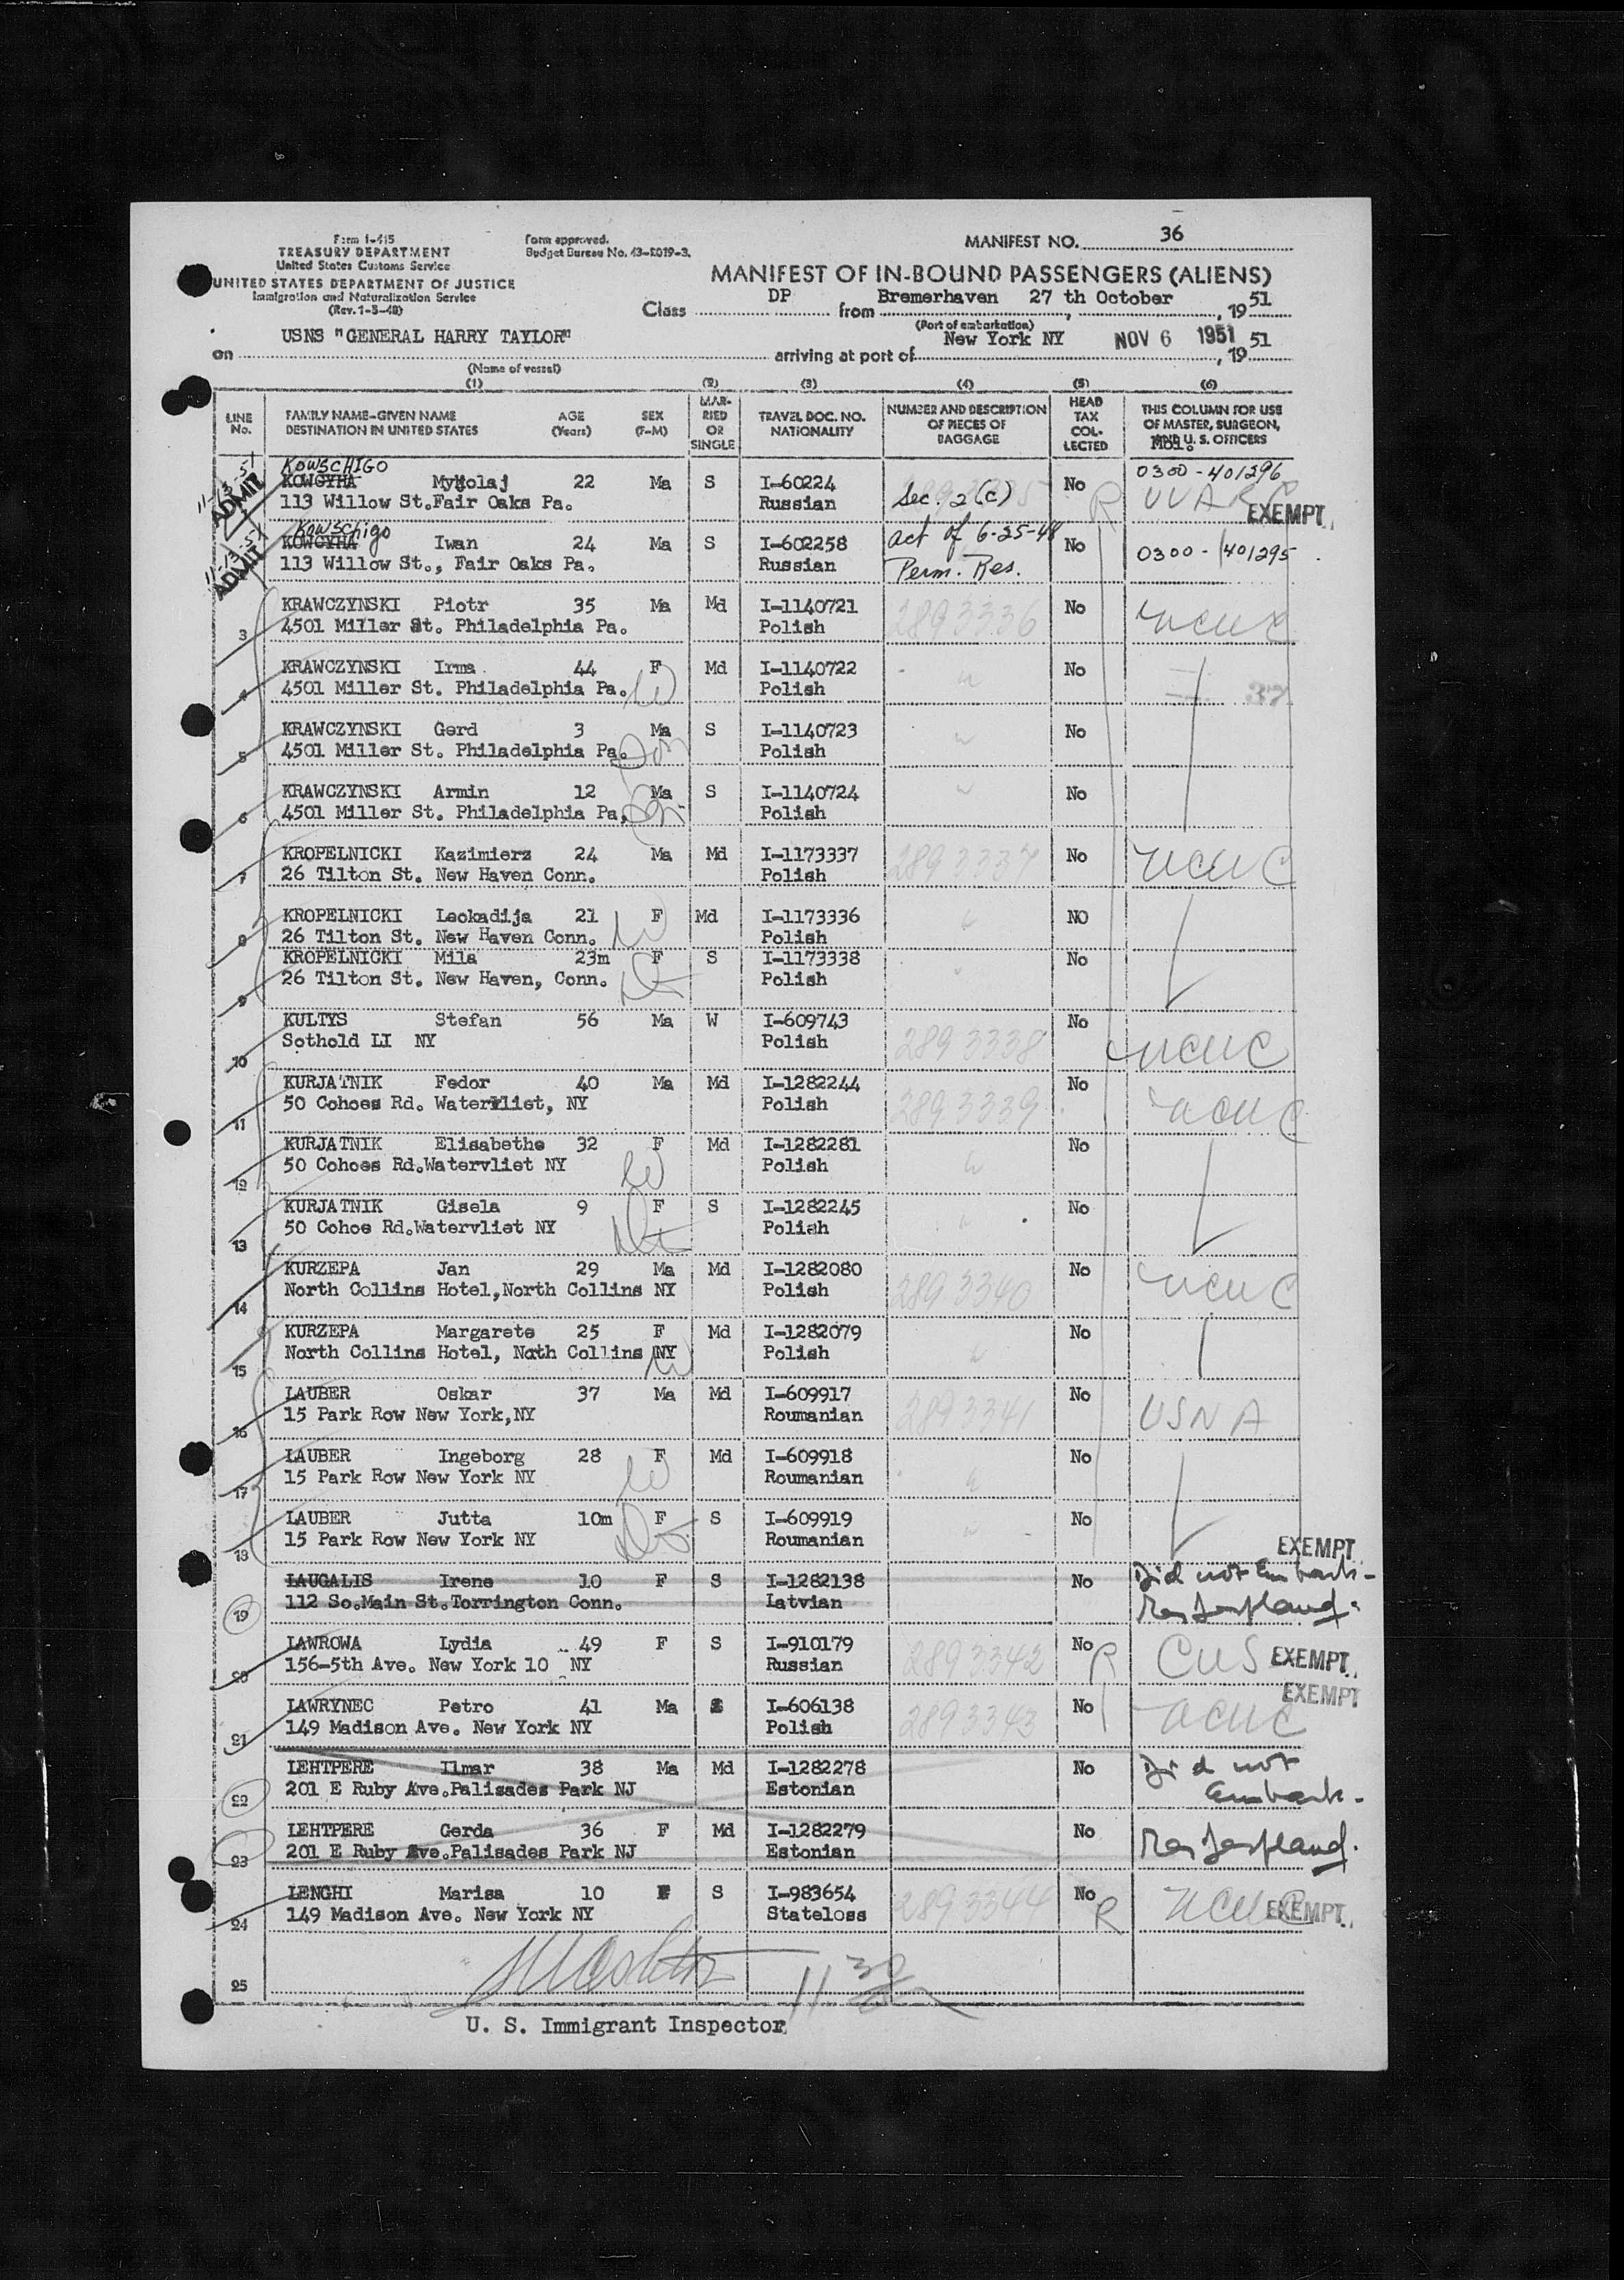 Form I-415
TREASURY DEPARTMENT
United States Customs Service
UNITED STATES DEPARTMENT OF JUSTICE
Immigration and Naturalization Service
(Rev. 1-5-48)
Form approved.
Budget Bureau No. 43-R019-3.
MANIFEST NO. 36
MANIFEST OF IN-BOUND PASSENGERS (ALIENS)
Class DP from Bremerhaven 27 th October, 1951
(Port of embarkation)
on USNS "GENERAL HARRY TAYLOR" arriving at port of New York NY NOV 6 1951, 19 51
(Name of vessel)
(1) (2) (3) (4) (5) (6)
LINE No. FAMILY NAME-GIVEN NAME DESTINATION IN UNITED STATES AGE (Years) SEX (F-M) MARRIED OR SINGLE TRAVEL DOC. NO. NATIONALITY NUMBER AND DESCRIPTION OF PIECES OF BAGGAGE HEAD TAX COLLECTED THIS COLUMN FOR USE OF MASTER, SURGEON, AND U. S. OFFICERS
KOWSCHIGO 0300-401296
ADMIT KOWGYHA Mykolaj 22 Ma S I-60224 No
113 Willow St.Fair Oaks Pa. Russian Sec. 2(c) R EXEMPT
Kowschigo
ADMIT KOWGYHA Iwan 24 Ma S I-602258 Act of 6-25-48 No 0300-401295
113 Willow St., Fair Oaks Pa. Russian Perm. Res.
3 KRAWCZYNSKI Piotr 35 Ma Md I-1140721 2893336 No UCUC
4501 Miller St. Philadelphia Pa. Polish
4 KRAWCZYNSKI Irma 44 F Md I-1140722 No
4501 Miller St. Philadelphia Pa. W Polish
5 KRAWCZYNSKI Gerd 3 Ma S I-1140723 No
4501 Miller St. Philadelphia Pa. Son Polish
6 KRAWCZYNSKI Armin 12 Ma S I-1140724 No
4501 Miller St. Philadelphia Pa, Son Polish
7 KROPELNICKI Kazimierz 24 Ma Md I-1173337 2893337 No UCUC
26 Tilton St. New Haven Conn. Polish
8 KROPELNICKI Leokadija 21 F Md I-1173336 NO
26 Tilton St. New Haven Conn. W Polish
9 KROPELNICKI Mila 23m F S I-1173338 No
26 Tilton St. New Haven, Conn. Polish
10 KULTYS Stefan 56 Ma W I-609743 2893338 No UCUC
Sothold LI NY Polish
11 KURJATNIK Fedor 40 Ma Md I-1282244 2893339 No UCUC
50 Cohoes Rd. Watervliet, NY Polish
12 KURJATNIK Elisabethe 32 F Md I-1282281 No
50 Cohoes Rd.Watervliet NY W Polish
13 KURJATNIK Gisela 9 F S I-1282245 No
50 Cohoe Rd.Watervliet NY Polish
14 KURZEPA Jan 29 Ma Md I-1282080 2893340 No UCUC
North Collins Hotel,North Collins NY Polish
15 KURZEPA Margarete 25 F Md I-1282079 No
North Collins Hotel, Noth Collins NY W Polish
16 LAUBER Oskar 37 Ma Md I-609917 2893341 No USNA
15 Park Row New York,NY Roumanian
17 LAUBER Ingeborg 28 F Md I-609918 No
15 Park Row New York NY W Roumanian
18 LAUBER Jutta 10m F S I-609919 No
15 Park Row New York NY Roumanian EXEMPT
19 LAUGALIS Irene 10 F S I-1282138 No Did not Embark-
112 So.Main St.Torrington Conn. Latvian
20 LAWROWA Lydia 49 F S I-910179 2893342 No R CUS EXEMPT
156-5th Ave. New York 10 NY Russian
21 LAWRYNEC Petro 41 Ma I-606138 2893343 No UCUC EXEMPT
149 Madison Ave. New York NY Polish
22 LEHTPERE Ilmar 38 Ma Md I-1282278 No Did not
201 E Ruby Ave.Palisades Park NJ Estonian Embark-
23 LEHTPERE Gerda 36 F Md I-1282279 No
201 E Ruby Ave.Palisades Park NJ Estonian
24 LENGHI Marisa 10 F S I-983654 2893344 No R UCUC EXEMPT
149 Madison Ave. New York NY Stateless
25 11 30
U. S. Immigrant Inspector